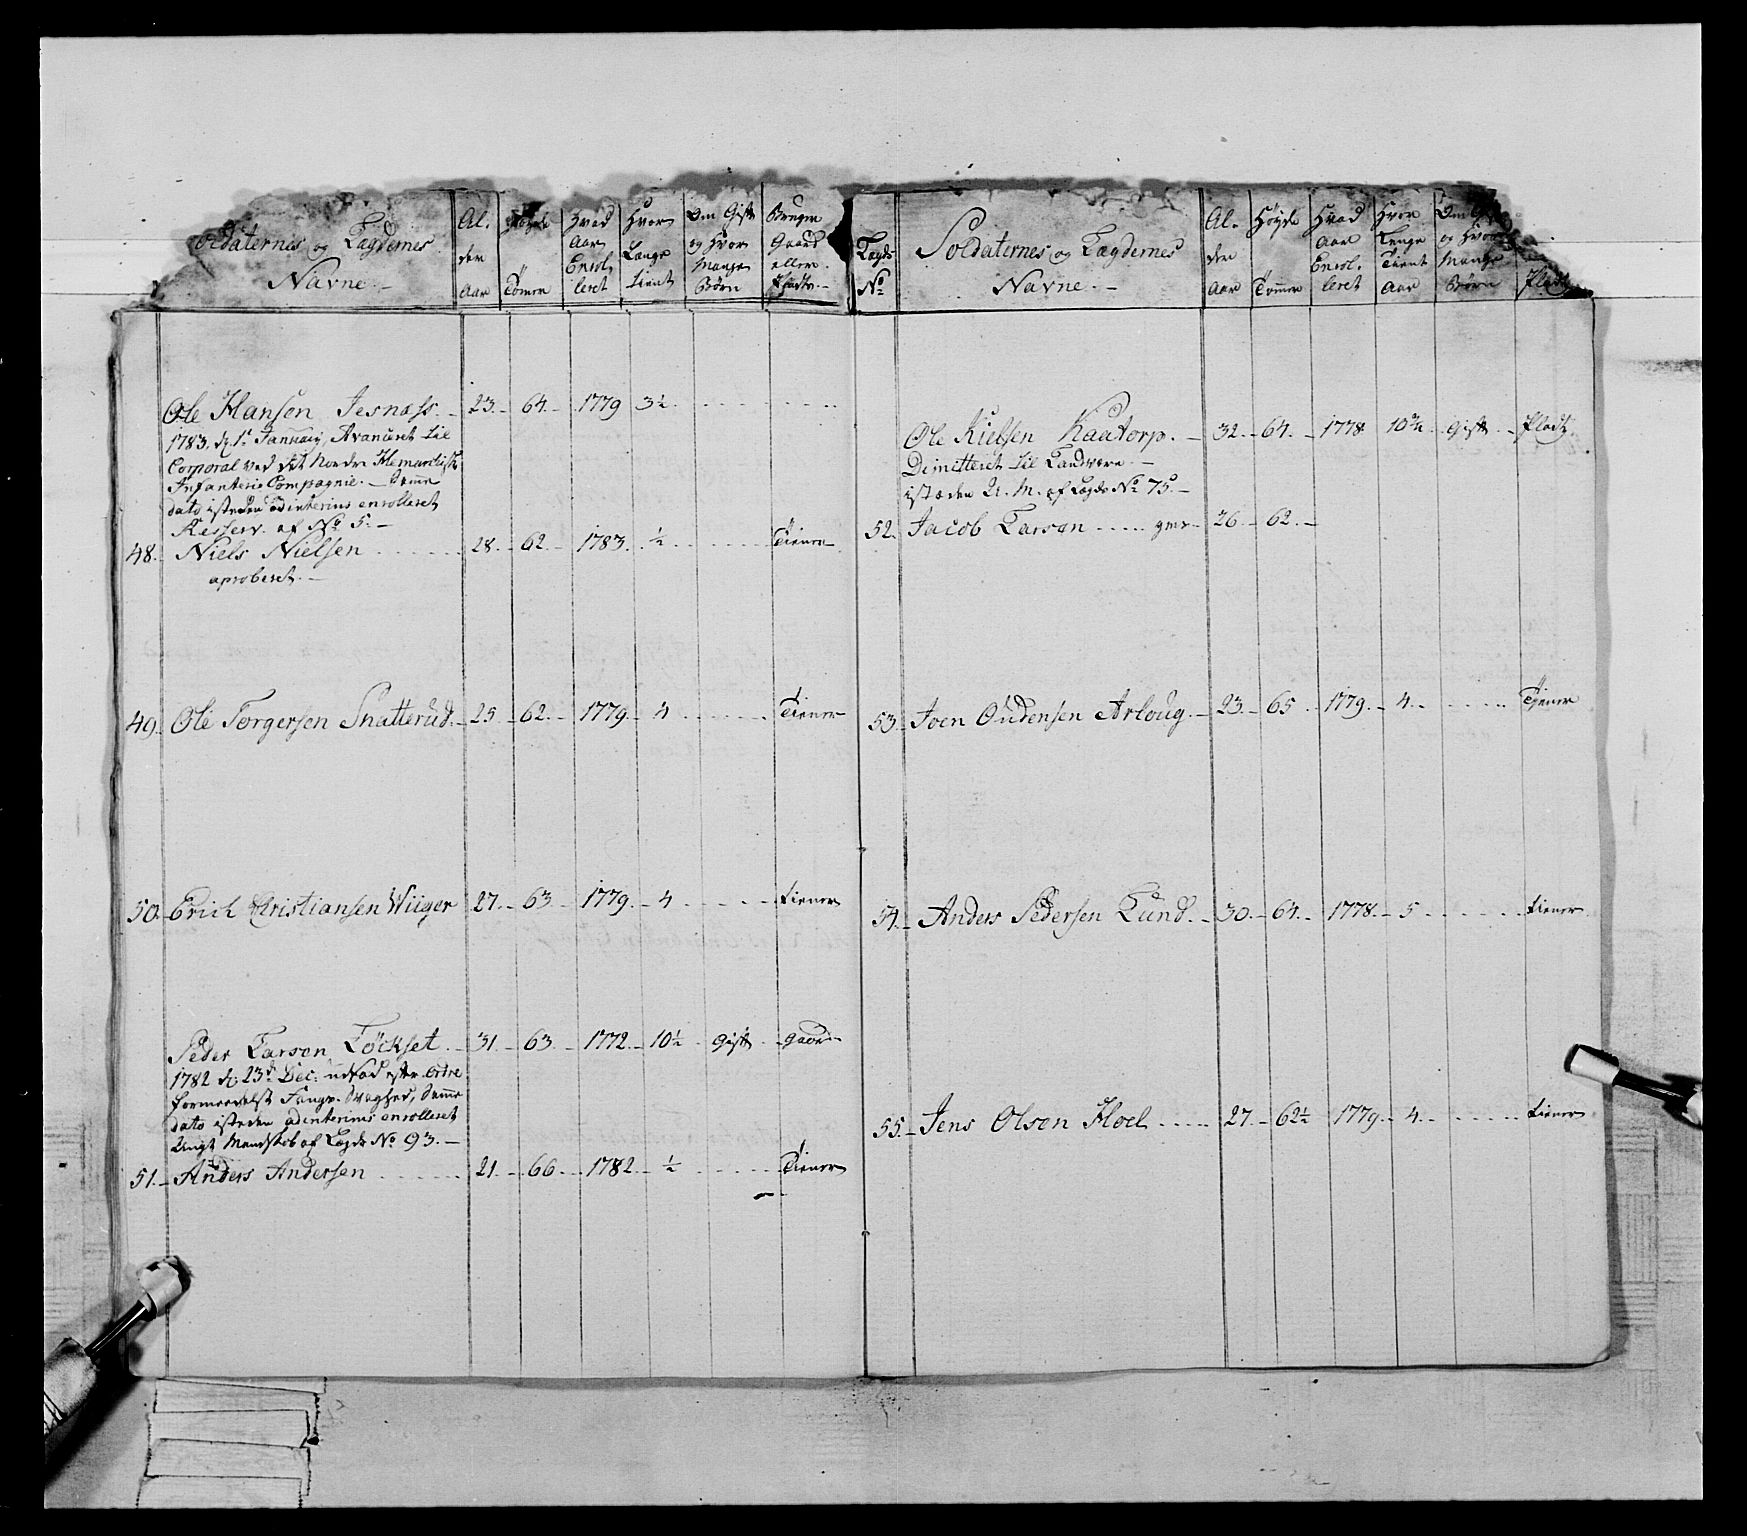 Soldaternes og Lægdernes
Navne.
Al-
der
Aar
Høyde
Tomer
Hvad
Aar
Enrol-
leret
Hvor
Længe
tient
Om Gift
og hvor
Mange
Børn
Bruger
Gaard
eller
Pladtz.
Ole Hansen Jesnæss. 23. 64. 1779 3½
1783. d. 1t Januarij Avanceret til
Corporal ved det Nordre Hemarckiske
Infanterie Compagnie. Samme
dato isteden adinterims enrolleret
Reserv. af No 5.
48. Niels Nielsen 28. 62. 1783. ½ Tiener
aproberet.
49. Ole Torgersen Snatterud. 25. 62. 1779. 4 Tiener
50. Erich Christiansen Wiiger 27. 63. 1779. 4 tiener
Peder Larsen Løckset. 31. 63. 1772. 10½ Gift gaard
1782 d. 23de Dec. udstød efter ordre
formedelst Svaghed, Samme
dato isteden adinterims enrolleret
Ungt Mandskab af Lægds No 93.
51. Anders Andersen 21. 66. 1782. ½ Tiener
Lægds
No
Soldaternes og Lægdernes
Navne.
Al-
der
Aar
Høyde
Tommer
Hvad
Aar
Enrol-
leret
Hvor
Lenge
Tient
Aar
Om
og hvor
Mange
Børn
Pladtz
Ole Nielsen Kaatorp. 32. 64. 1778 10¾ Gift Pladtz
Dimitteret til Landværn.
isteden U. M. af Lægds No 75.
52. Jacob Larsen 26. 62.
53. Joen Oudensen Arloug. 23. 65. 1779. 4. Tjener
54. Anders Pedersen Lund. 30. 64. 1778. 5 tiener
55. Jens Olsen Hoel 27. 62½ 1779. 4. tiener